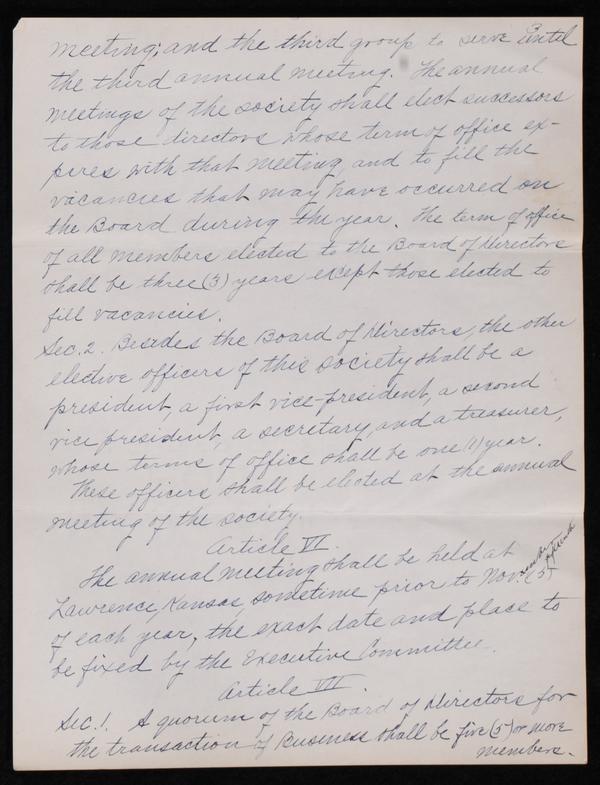 meeting; and the third group to serve Until
the third annual meeting. The annual
meetings of the society shall elect successors
to those directors whose term of office ex-
pires with that meeting, and to fill the
vacancies that may have occurred on
the Board during the year. The term of office
of all members elected to the Board of Directors
shall be three (3) years except those elected to
fill vacancies.
Sec. 2. Besides the Board of Directors, the other
elective officers of this society shall be a
president, a first vice-president, a second
vice president, a secretary, and a treasurer,
whose terms of office shall be one (1) year.
These officers shall be elected at the annual
meeting of the society.
Article VI.
The annual meeting shall be held at
Lawrence, Kansas, sometime prior to Nov. 15
of each year, the exact date and place to
be fixed by the Executive Committee.
Article VII.
Sec. 1. A quorum of the Board of Directors for
the transaction of Business shall be five (5) or more
members.